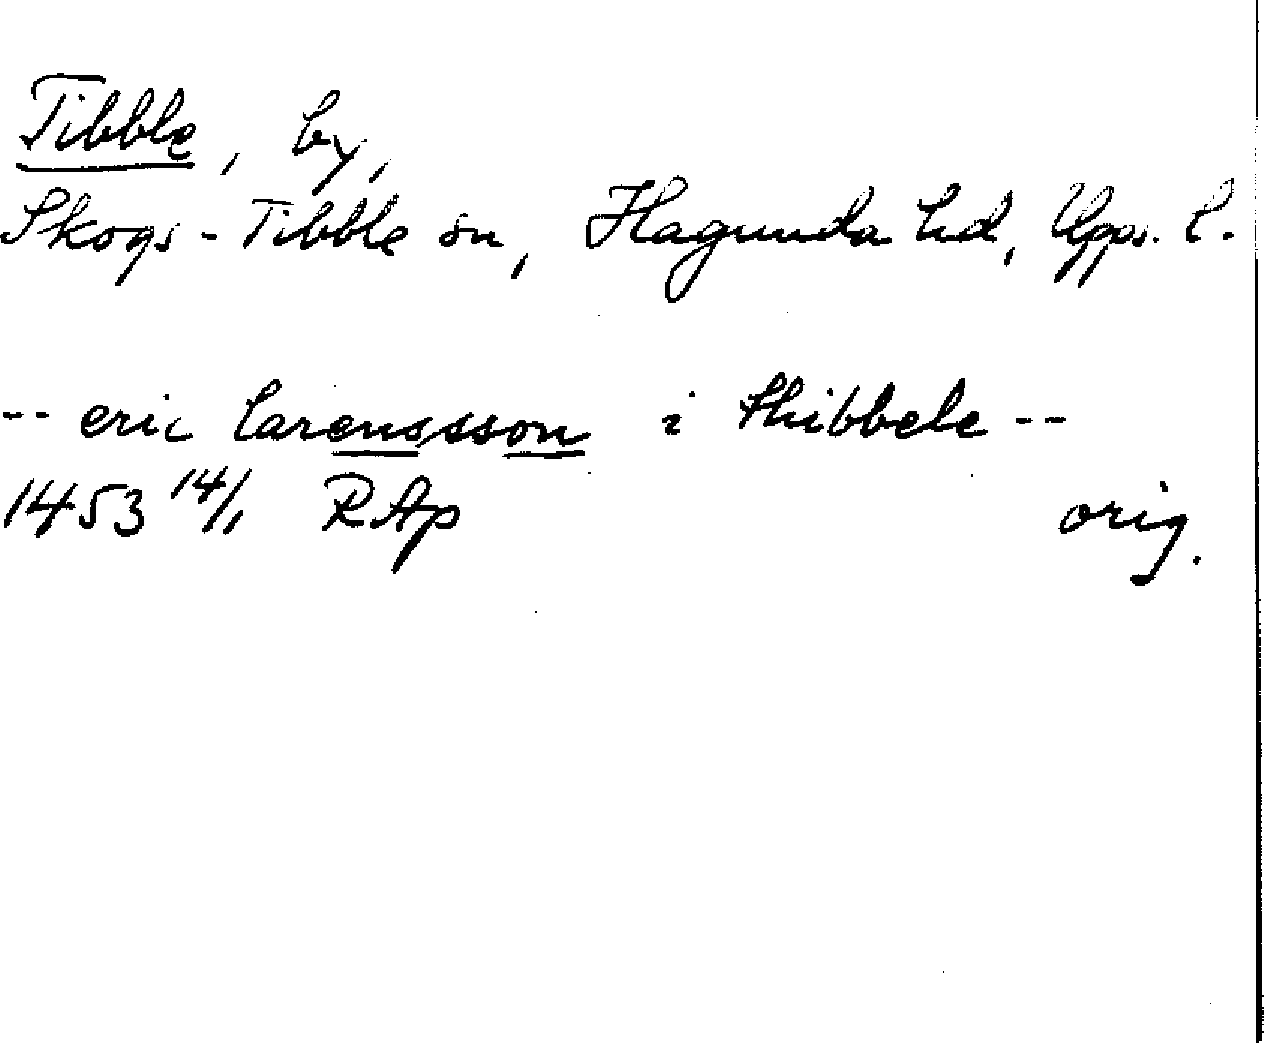 Tibble, by,
Skogs-Tibble sn, Hagunda hd, Upps. l.
-- eric larensson i thibbele --
1453 14/1 RAp orig.